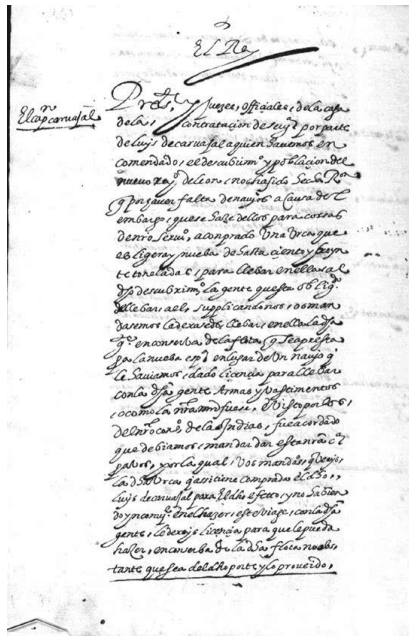 El Rey
El capn carvajal
Presidte y Juezes, officiales, de la casa
de la, contratacion de sevja por parte
de luys de carvajal a quien havemos en
comendado, el descubrimo y poblacion del
nuevo reyo de leon, nos ha sido hecha Ron
q por haver falta de navios a causa del
embargo, que se haze dellos para cossas
de nro servio, a conprado Una Urca que
es ligera y nueba de hasta ciento y treyn
te toneladas, para llebar en ella al
dho descubrimo la gente que esta obligdo
llebar, a el, supplicandonos, os man
dasemos la dexasedes llebar, en ella la dha
en conserva de la flota q se apresta
para la nueba espa en lugar de Un navio q
le haviamos, dado licencia para llebar
con la dha gente Armas y vastimentos
o como la nra md fuese, E visto por los,
del nro conso de las Indias, fue acordado
que debiamos, mandar dar esta nra ca
para vos, por la qual, Vos mando, que
la dha Urca que assi tiene comprada el dho,
luys de carvajal para El dho efecto, y no haviendo
en el hazer, este viaje, con la dha
gente, le dexeys licencia para que le pueda
hazer, en conserba de la dha flota no obs,
tante que sea del dho porte y lo proveido,